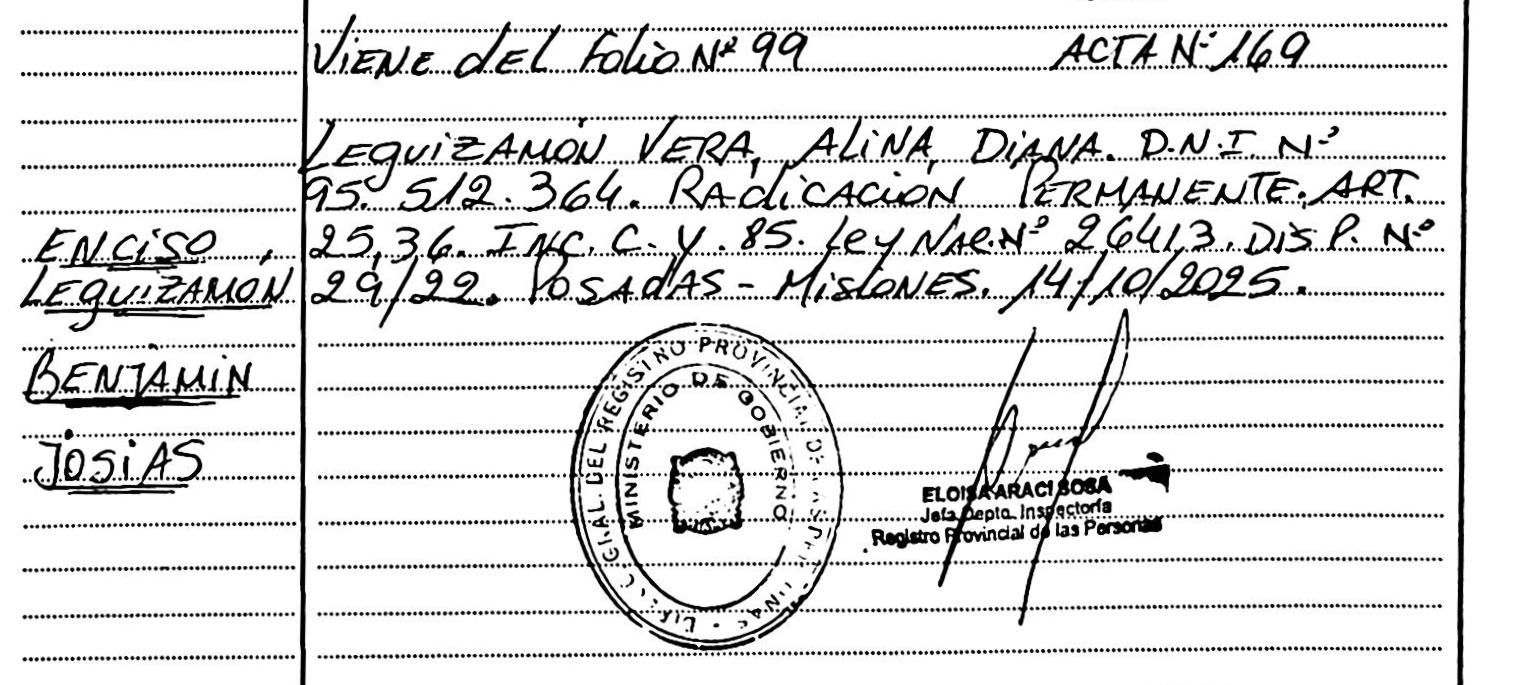 VIENE DEL Folio Nº 99 ACTA Nº 169
LEGUIZAMÓN VERA, ALINA, DIANA. D.N.I. Nº
95.512.364. RADICACIÓN PERMANENTE. ART.
25,36. INC. C. Y. 85. Ley NAC. Nº 26413. DISP. Nº
29/22. POSADAS - MISIONES. 14/10/2025.
ENCISO,
LEGUIZAMÓN
BENJAMIN
JOSIAS
DEL REGISTRO PROVINCIAL DE LAS PERSONAS
MINISTERIO DE GOBIERNO
ELOISA ARACI SOSA
Jefa Depto. Inspectoría
Registro Provincial de las Personas